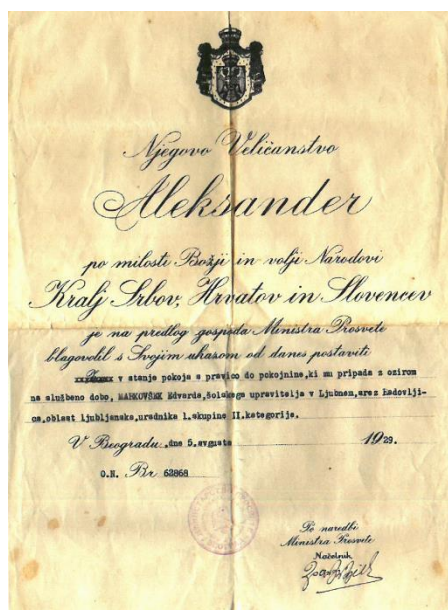 Njegovo Veličanstvo
Aleksander
po milosti Božji in volji Narodovi
Kralj Srbov, Hrvatov in Slovencev
je na predlog gospoda Ministra Prosvete
blagovolil s Svojim ukazom od danes postaviti
v stanje pokoja s pravico do pokojnine, ki mu pripada z ozirom
na službeno dobo, MARKOVŠEK Edvarda, šolskega upravitelja v Ljubnem, srez Radovlji-
ca, oblast ljubljanska, uradnika 1. skupine II. kategorije.
V Beogradu, dne 5. avgusta 1929.
O.N. Br 62868
Po naredbi
Ministra Prosvete
Načelnik